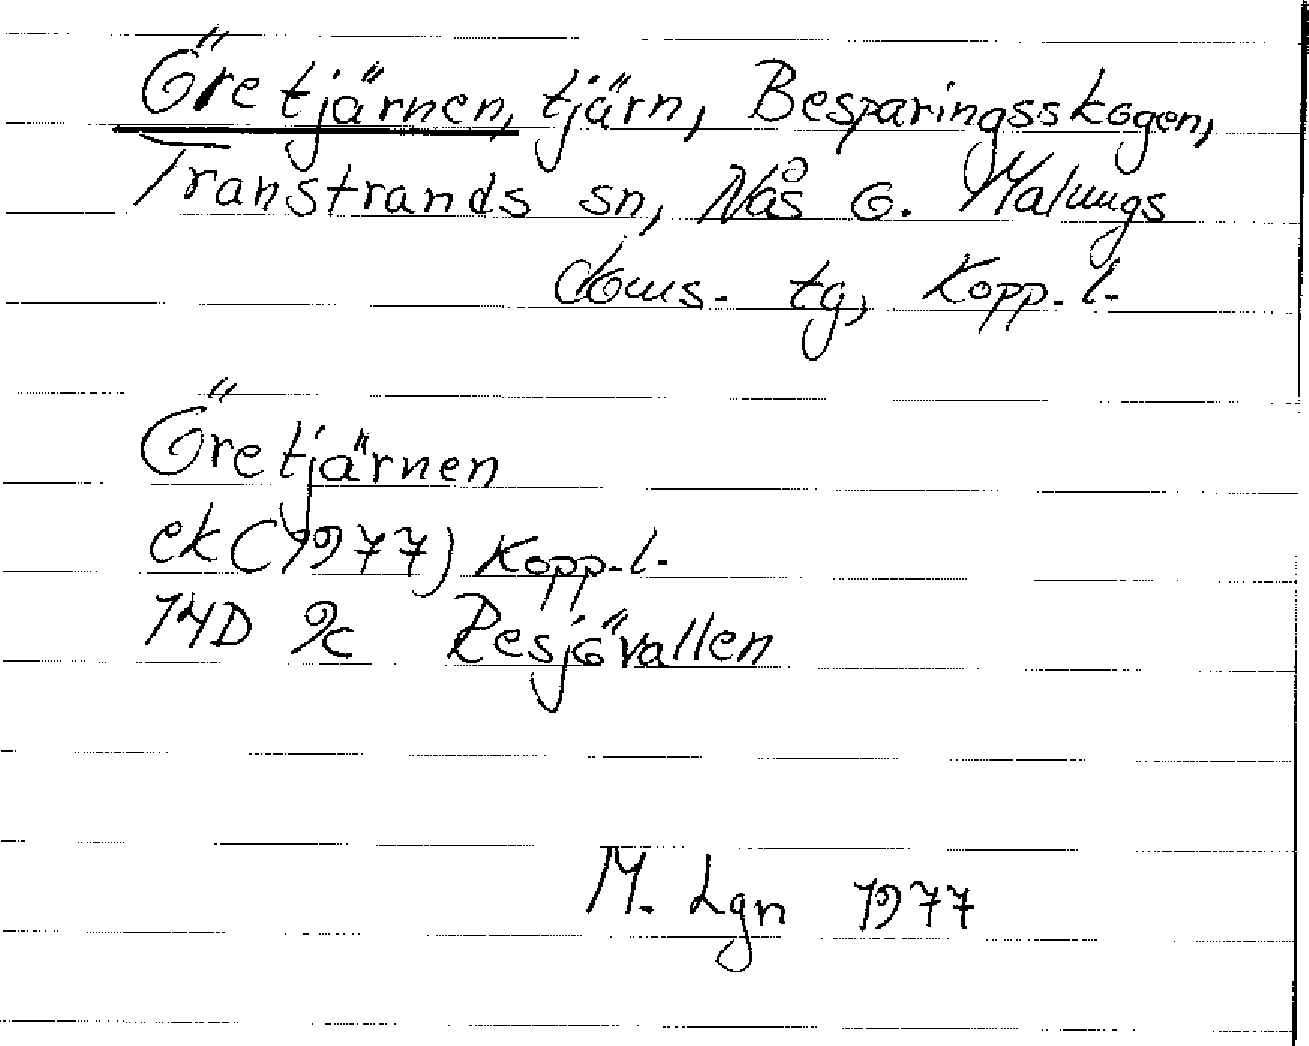 Öretjärnen, tjärn, Besparingsskogen,
Transtrands sn, Nås o. Malungs
doms. tg, Kopp. l.
Öretjärnen
ek (1977) Kopp. l.
14D 9c Resjövallen
M. Lgn 1977